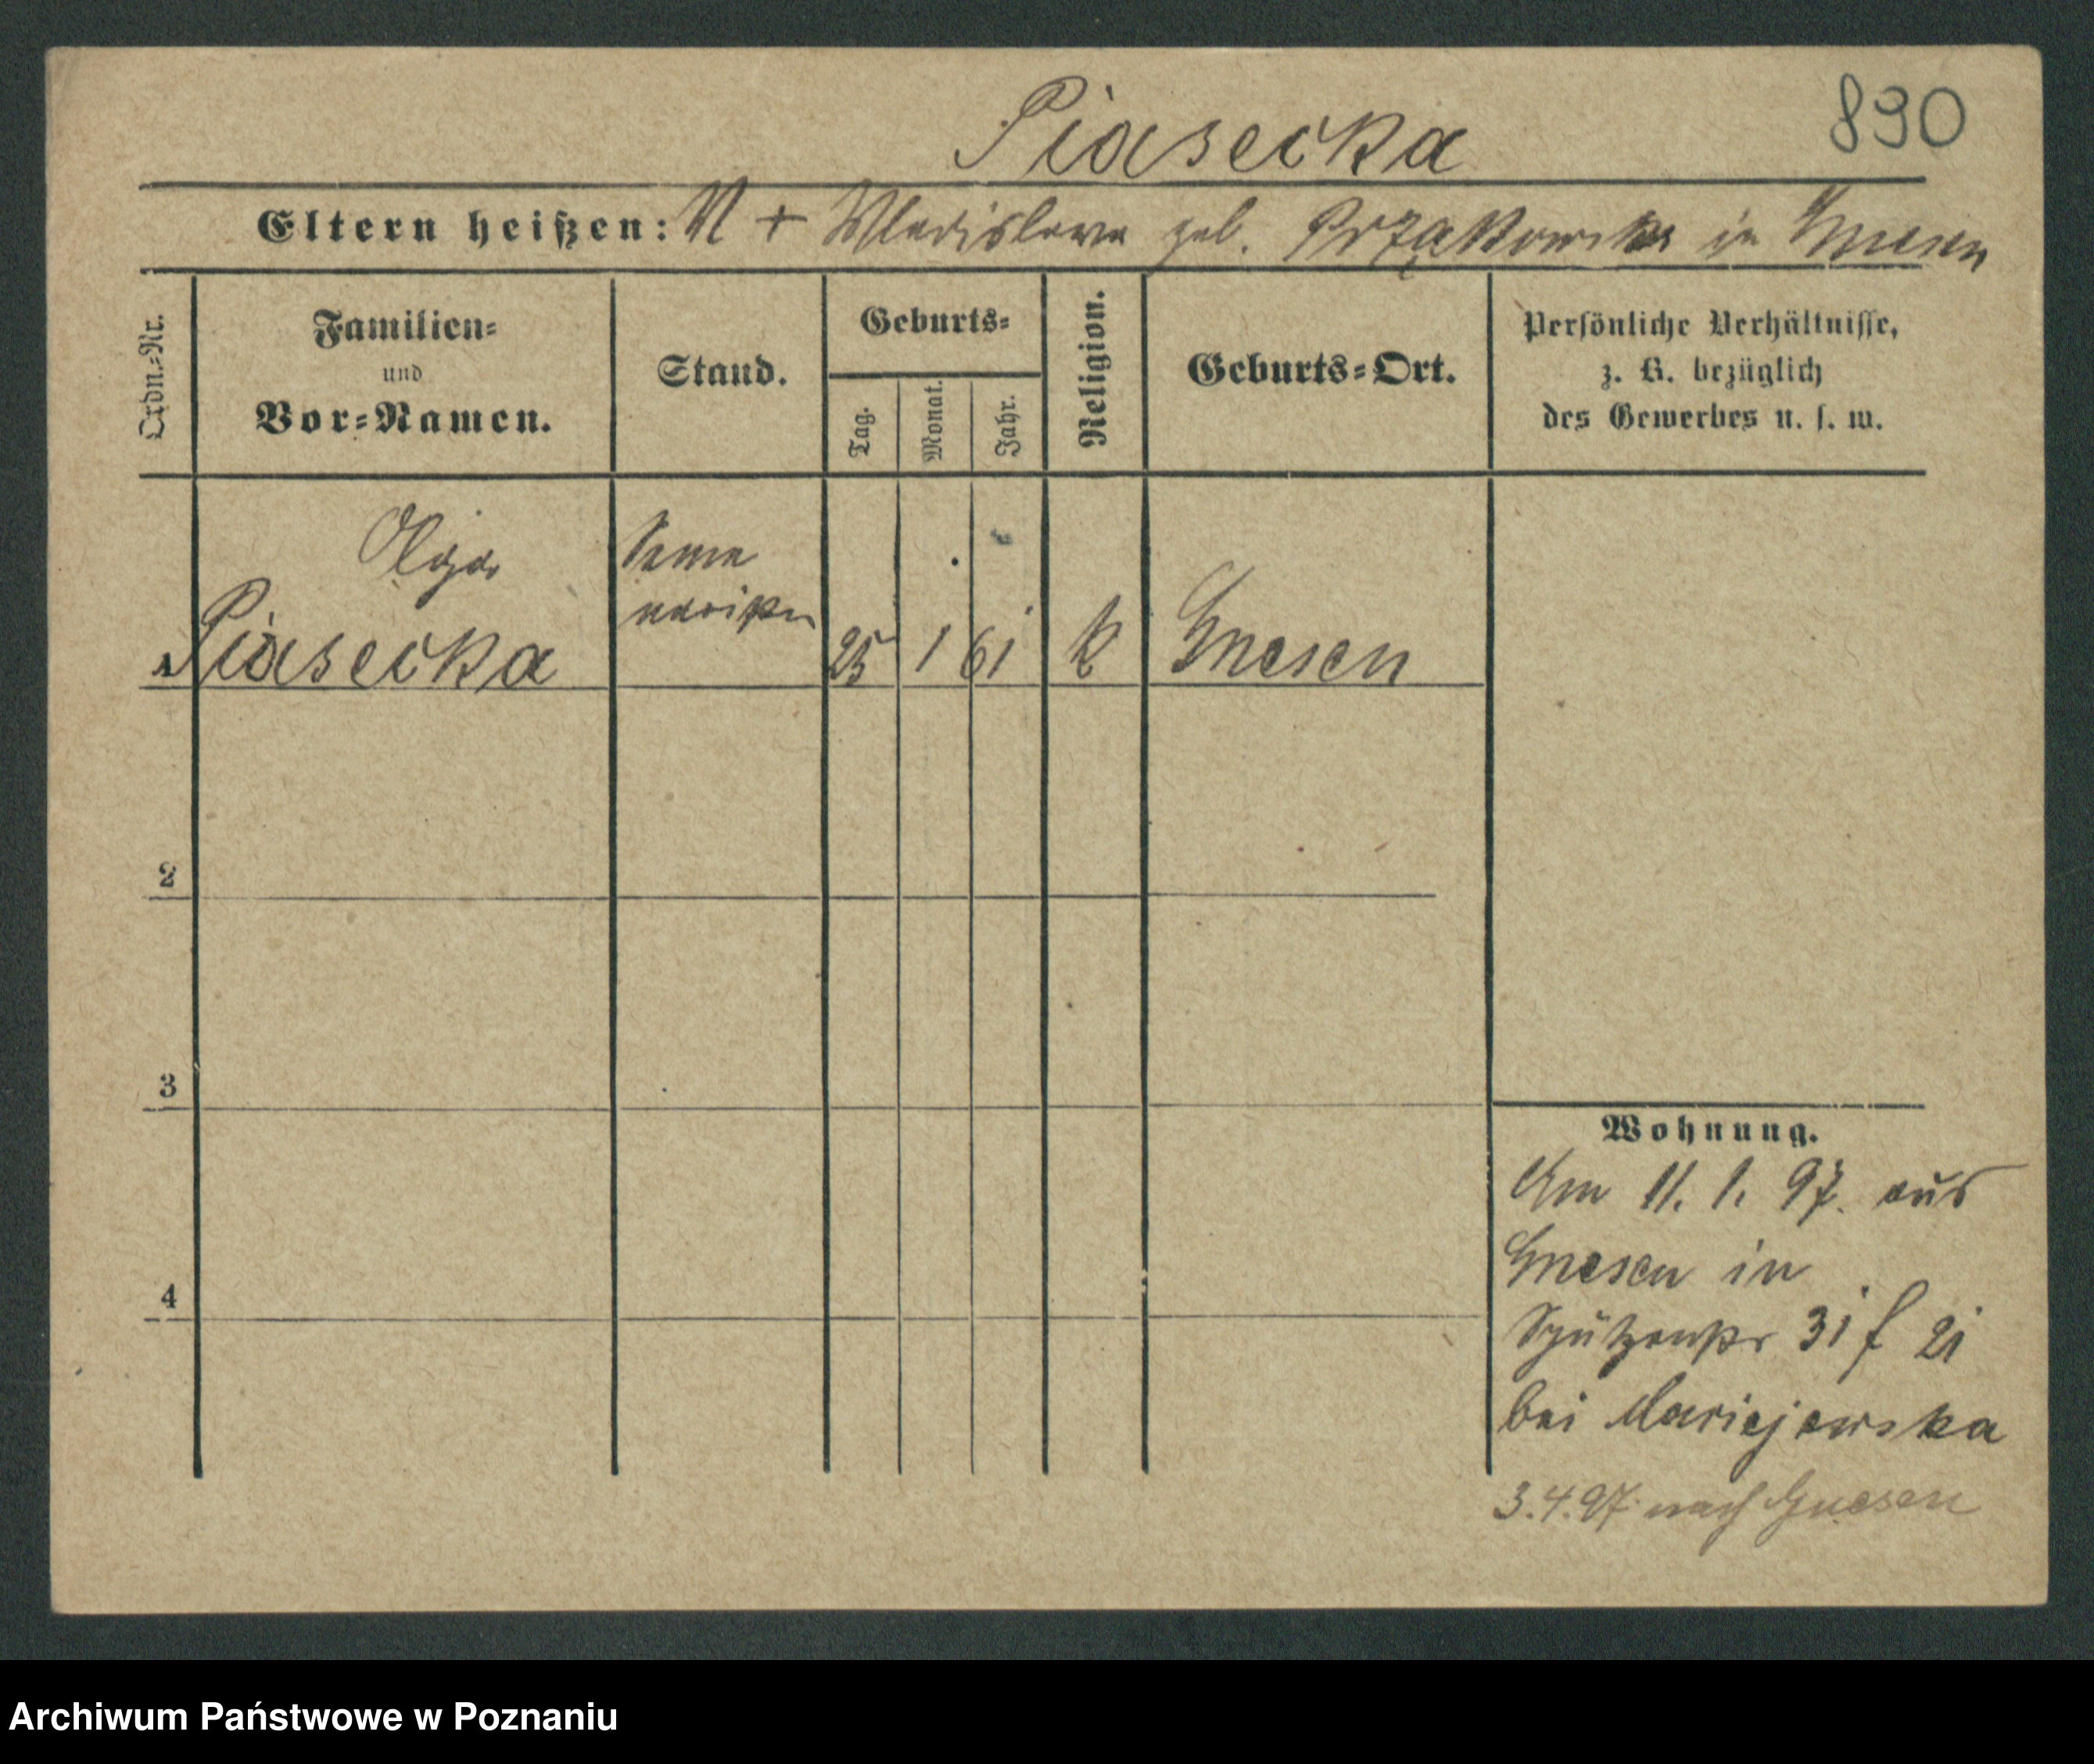 Piasecka
890
Eltern heißen: N + Wladislawa geb. in Gnesen
Ordn.=Nr.
Familien=
und
Vor=Namen.
Stand.
Geburts=
Tag.
Monat.
Jahr.
Religion.
Geburts=Ort.
Persönliche Verhältnisse,
z. B. bezüglich
des Gewerbes u. s. w.
Olga
Piasecka
Seme
naristin
25 1 61 k Gnesen
1
2
3
4
Wohnung.
Am 11. 1. 97. aus
Gnesen in
Schützenstr 31 f 2i
bei Maciejewska
3.4.97. nach Gnesen
Archiwum Państwowe w Poznaniu